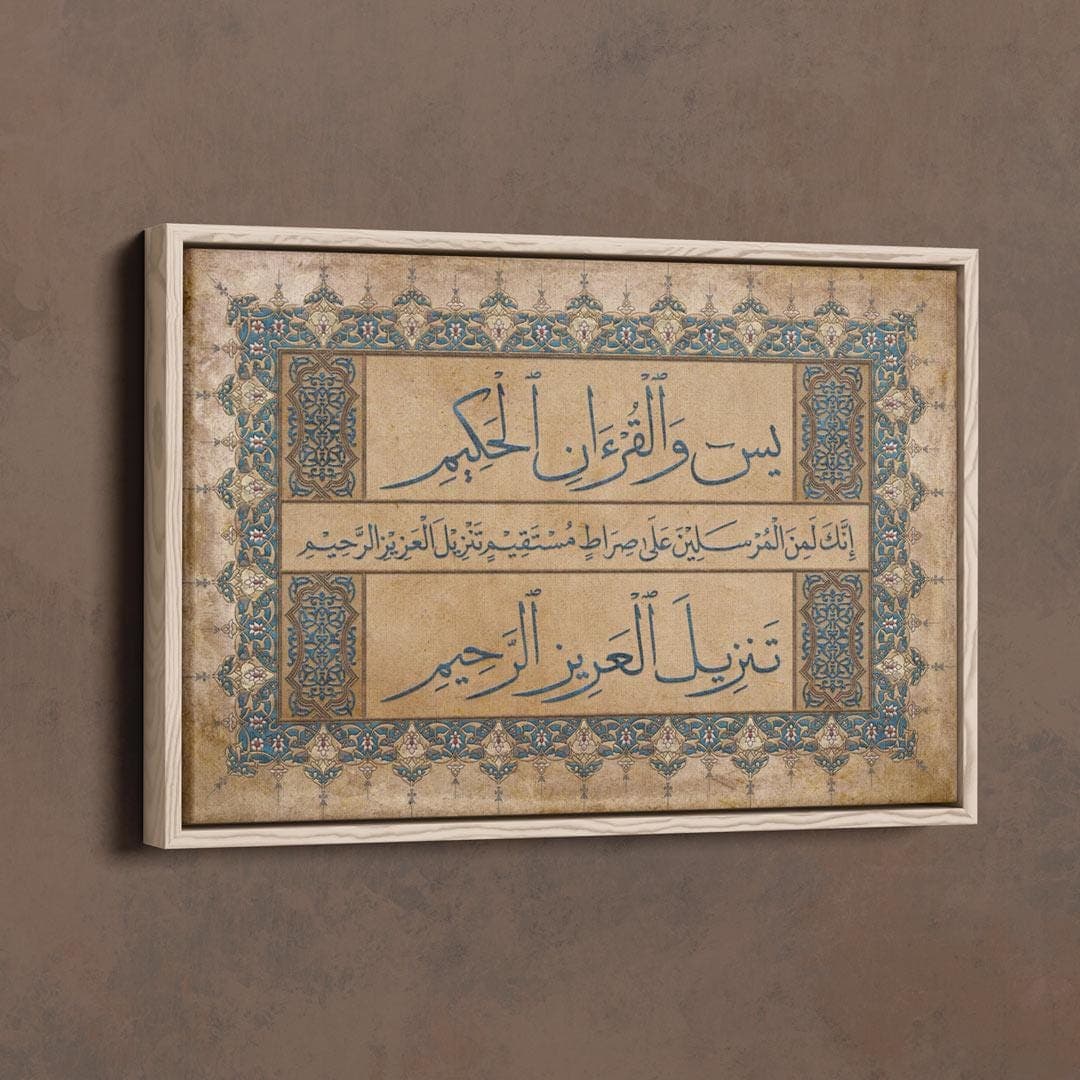 يسٓ وَٱلْقُرْءَانِ ٱلْحَكِيمِ
إِنَّكَ لَمِنَ الْمُرْسَلِينَ عَلَى صِرَاطٍ مُسْتَقِيمٍ تَنْزِيلَ الْعَزِيزِ الرَّحِيمِ
تَنزِيلَ ٱلْعَزِيزِ ٱلرَّحِيمِ